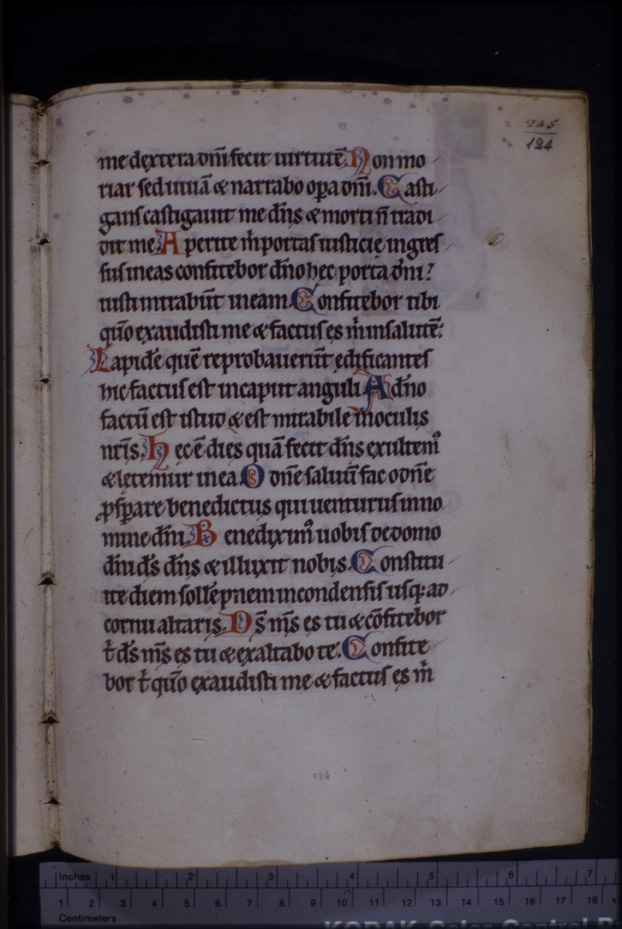 245
124
me dextera dñi fecit uirtutẽ. Non mo
riar sed uiuã & narrabo opa dñi. Casti
gans castigauit me dñs & morti ñ tradi
dit me. Aperite m̃ portas iusticie ingres
sus in eas confitebor dño hec porta dñi
iusti intrabũt in eam. Confitebor tibi
qũo exaudisti me & factus es m̃ in salutẽ.
Lapidẽ quẽ reprobauerũt edificantes
hic factus est in caput anguli. A dño
factũ est istud & est mirabile in oculis
nr̃is. Hec ẽ dies quã fecit dñs exultem⁹
& letemur in ea. O dñe saluũ fac o dñe
ꝓsꝑare benedictus qui uenturus in no
mine dñi. Benedixim⁹ uobis de domo
dñi ds̃ dñs & illuxit nobis. Constitu
ite diem sollẽpnem in condensis usq; ad
cornu altaris. Ds̃ m̃s es tu & cõfitebor
t̃ ds̃ m̃s es tu & exaltabo te. Confite
bor t̃ qũo exaudisti me & factus es m̃
124
Inches 1 2 3 4 5 6 7
1 2 3 4 5 6 7 8 9 10 11 12 13 14 15 16 17 18
Centimeters
KODAK Color Control P